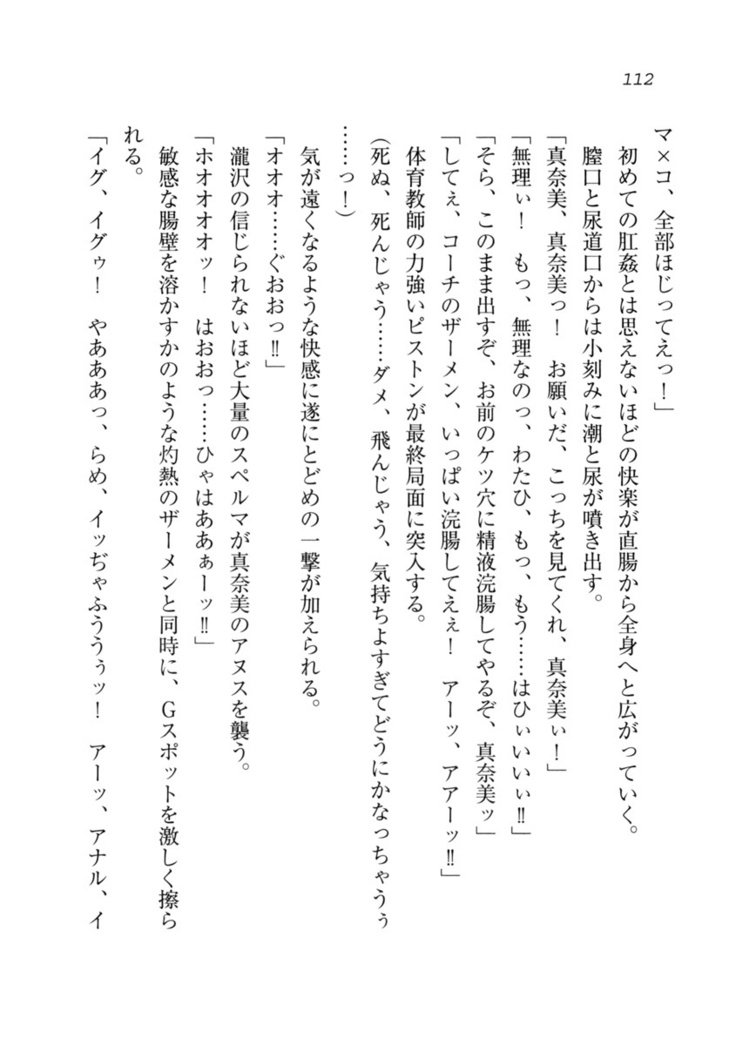 112
マ×コ、全部ほじってえっ！」
初めての肛姦とは思えないほどの快楽が直腸から全身へと広がっていく。
膣口と尿道口からは小刻みに潮と尿が噴き出す。
「真奈美、真奈美っ！　お願いだ、こっちを見てくれ、真奈美ぃ！」
「無理ぃ！　もっ、無理なのっ、わたひ、もっ、もう……はひぃいいぃ‼」
「そら、このまま出すぞ、お前のケツ穴に精液浣腸してやるぞ、真奈美ッ」
「してぇ、コーチのザーメン、いっぱい浣腸してえぇ！　アーッ、アアーッ‼」
体育教師の力強いピストンが最終局面に突入する。
(死ぬ、死んじゃう……ダメ、飛んじゃう、気持ちよすぎてどうにかなっちゃうぅ
……っ！)
気が遠くなるような快感に遂にとどめの一撃が加えられる。
「オオオ……ぐおおっ‼」
瀧沢の信じられないほど大量のスペルマが真奈美のアヌスを襲う。
「ホオオオオッ！　はおおっ……ひゃはああぁーッ‼」
敏感な腸壁を溶かすかのような灼熱のザーメンと同時に、Gスポットを激しく擦ら
れる。
「イグ、イグゥ！　やあああっ、らめ、イッぢゃふううぅッ！　アーッ、アナル、イ